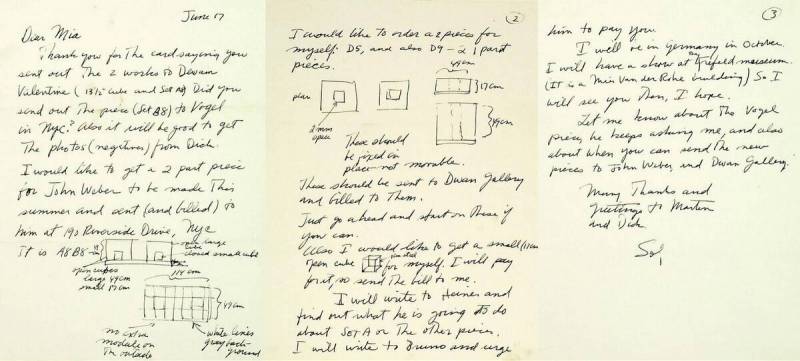 June 17
Dear Mia
Thank you for the card saying you
sent out the 2 works to Dwan
Valentine (13½ cube and Set A9) Did you
send out the piece (Set A8) to Vogel
in NYC? Also it will be good to get
the photos (negatives) from Dick.
I would like to get a 2 part piece
for John Weber to be made this
summer and sent (and billed) to
him at 190 Riverside Drive, NYC
It is A8B8
one large
cube
closed small cube
open cubes
large 49cm
small 17cm
114cm
49cm
no extra
modules on
the outside
white lines
gray back-
ground
2
I would like to order a 2 pieces for
myself: D5, and also D9 - 2 1 part
pieces.
49cm
plan
17cm
49cm
2mm
space
These should
be fixed in
place - not movable.
These should be sent to Dwan Gallery
and billed to them.
Just go ahead and start on these if
you can.
Also I would like to get a small (17cm
open cube for myself. I will pay
for it, so send the bill to me.
I will write to Heiner and
find out what he is going to do
about Set A or the other pieces.
I will write to Bruno and urge
3
him to pay you.
I will be in Germany in October.
I will have a show at the Krefeld museum.
(It is a Mies Van der Rohe building) So I
will see you then, I hope.
Let me know about the Vogel
piece, he keeps asking me, and also
about when you can send the new
pieces to John Weber and Dwan Gallery.
Many Thanks and
greetings to Martin
and Dick
Sol